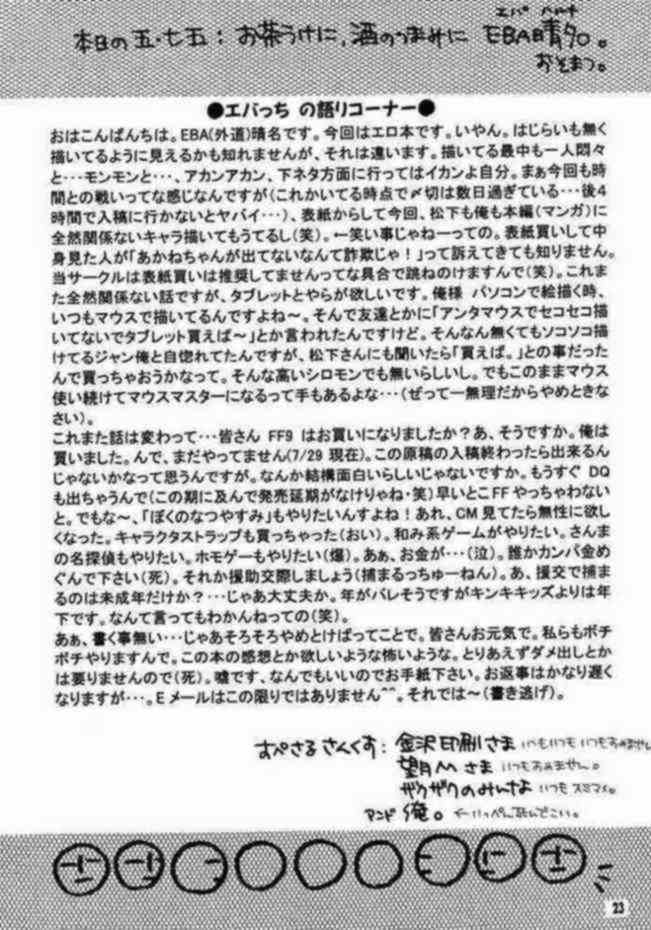 エバ ハルナ
本日の五・七五：お茶うけに、酒のつまみに EBA晴名。
おそまつ。
●エバっち の語りコーナー●
おはこんばんちは。EBA(外道)晴名です。今回はエロ本です。いやん。はじらいも無く
描いてるように見えるかも知れませんが、それは違います。描いてる最中も一人悶々
と…モンモンと…、アカンアカン、下ネタ方面に行ってはイカンよ自分。まぁ今回も時
間との戦いってな感じなんですが(これかいてる時点で〆切は数日過ぎている…後4
時間で入稿に行かないとヤバイ…)、表紙からして今回、松下も俺も本編(マンガ)に
全然関係ないキャラ描いてもうてるし(笑)。←笑い事じゃねーっての。表紙買いして中
身見た人が「あかねちゃんが出てないなんて詐欺じゃ！」って訴えてきても知りません。
当サークルは表紙買いは推奨してませんってな具合で跳ねのけますんで(笑)。これま
た全然関係ない話ですが、タブレットとやらが欲しいです。俺様 パソコンで絵描く時、
いつもマウスで描いてるんですよね～。そんで友達とかに「アンタマウスでセコセコ描
いてないでタブレット買えば～」とか言われたんですけど。そんなん無くてもソコソコ描
けてるジャン俺と自惚れてたんですが、松下さんにも聞いたら「買えば。」との事だった
んで買っちゃおうかなって。そんな高いシロモンでも無いらしいし。でもこのままマウス
使い続けてマウスマスターになるって手もあるよな…(ぜって一無理だからやめときな
さい)。
これまた話は変わって…皆さん FF9 はお買いになりましたか？あ、そうですか。俺は
買いました。んで、まだやってません(7/29 現在)。この原稿の入稿終わったら出来るん
じゃないかなって思うんですが。なんか結構面白いらしいじゃないですか。もうすぐ DQ
も出ちゃうんで(この期に及んで発売延期がなけりゃね・笑)早いとこFFやっちゃわない
と。でもな～、「ぼくのなつやすみ」もやりたいんすよね！あれ、CM見てたら無性に欲し
くなった。キャラクタストラップも買っちゃった(おい)。和み系ゲームがやりたい。さんま
の名探偵もやりたい。ホモゲーもやりたい(爆)。あぁ、お金が…(泣)。誰かカンパ金め
ぐんで下さい(死)。それか援助交際しましょう(捕まるっちゅーねん)。あ、援交で捕ま
るのは未成年だけか？…じゃあ大丈夫か。年がバレそうですがキンキキッズよりは年
下です。なんて言ってもわかんねっての(笑)。
あぁ、書く事無い…じゃあそろそろやめとけばってことで。皆さんお元気で。私らもボチ
ボチやりますんで。この本の感想とか欲しいような怖いような。とりあえずダメ出しとか
は要りませんので(死)。嘘です、なんでもいいのでお手紙下さい。お返事はかなり遅く
なりますが…。Eメールはこの限りではありません^^。それでは～(書き逃げ)。
すぺさるさんくす：金沢印刷さま いつもいつもいつもすみません
望月Mさま いつもすみません。
ザクザクのみんなよ いつもスミマセ。
アンド 俺。 ←いっぺん死んでこい。
23